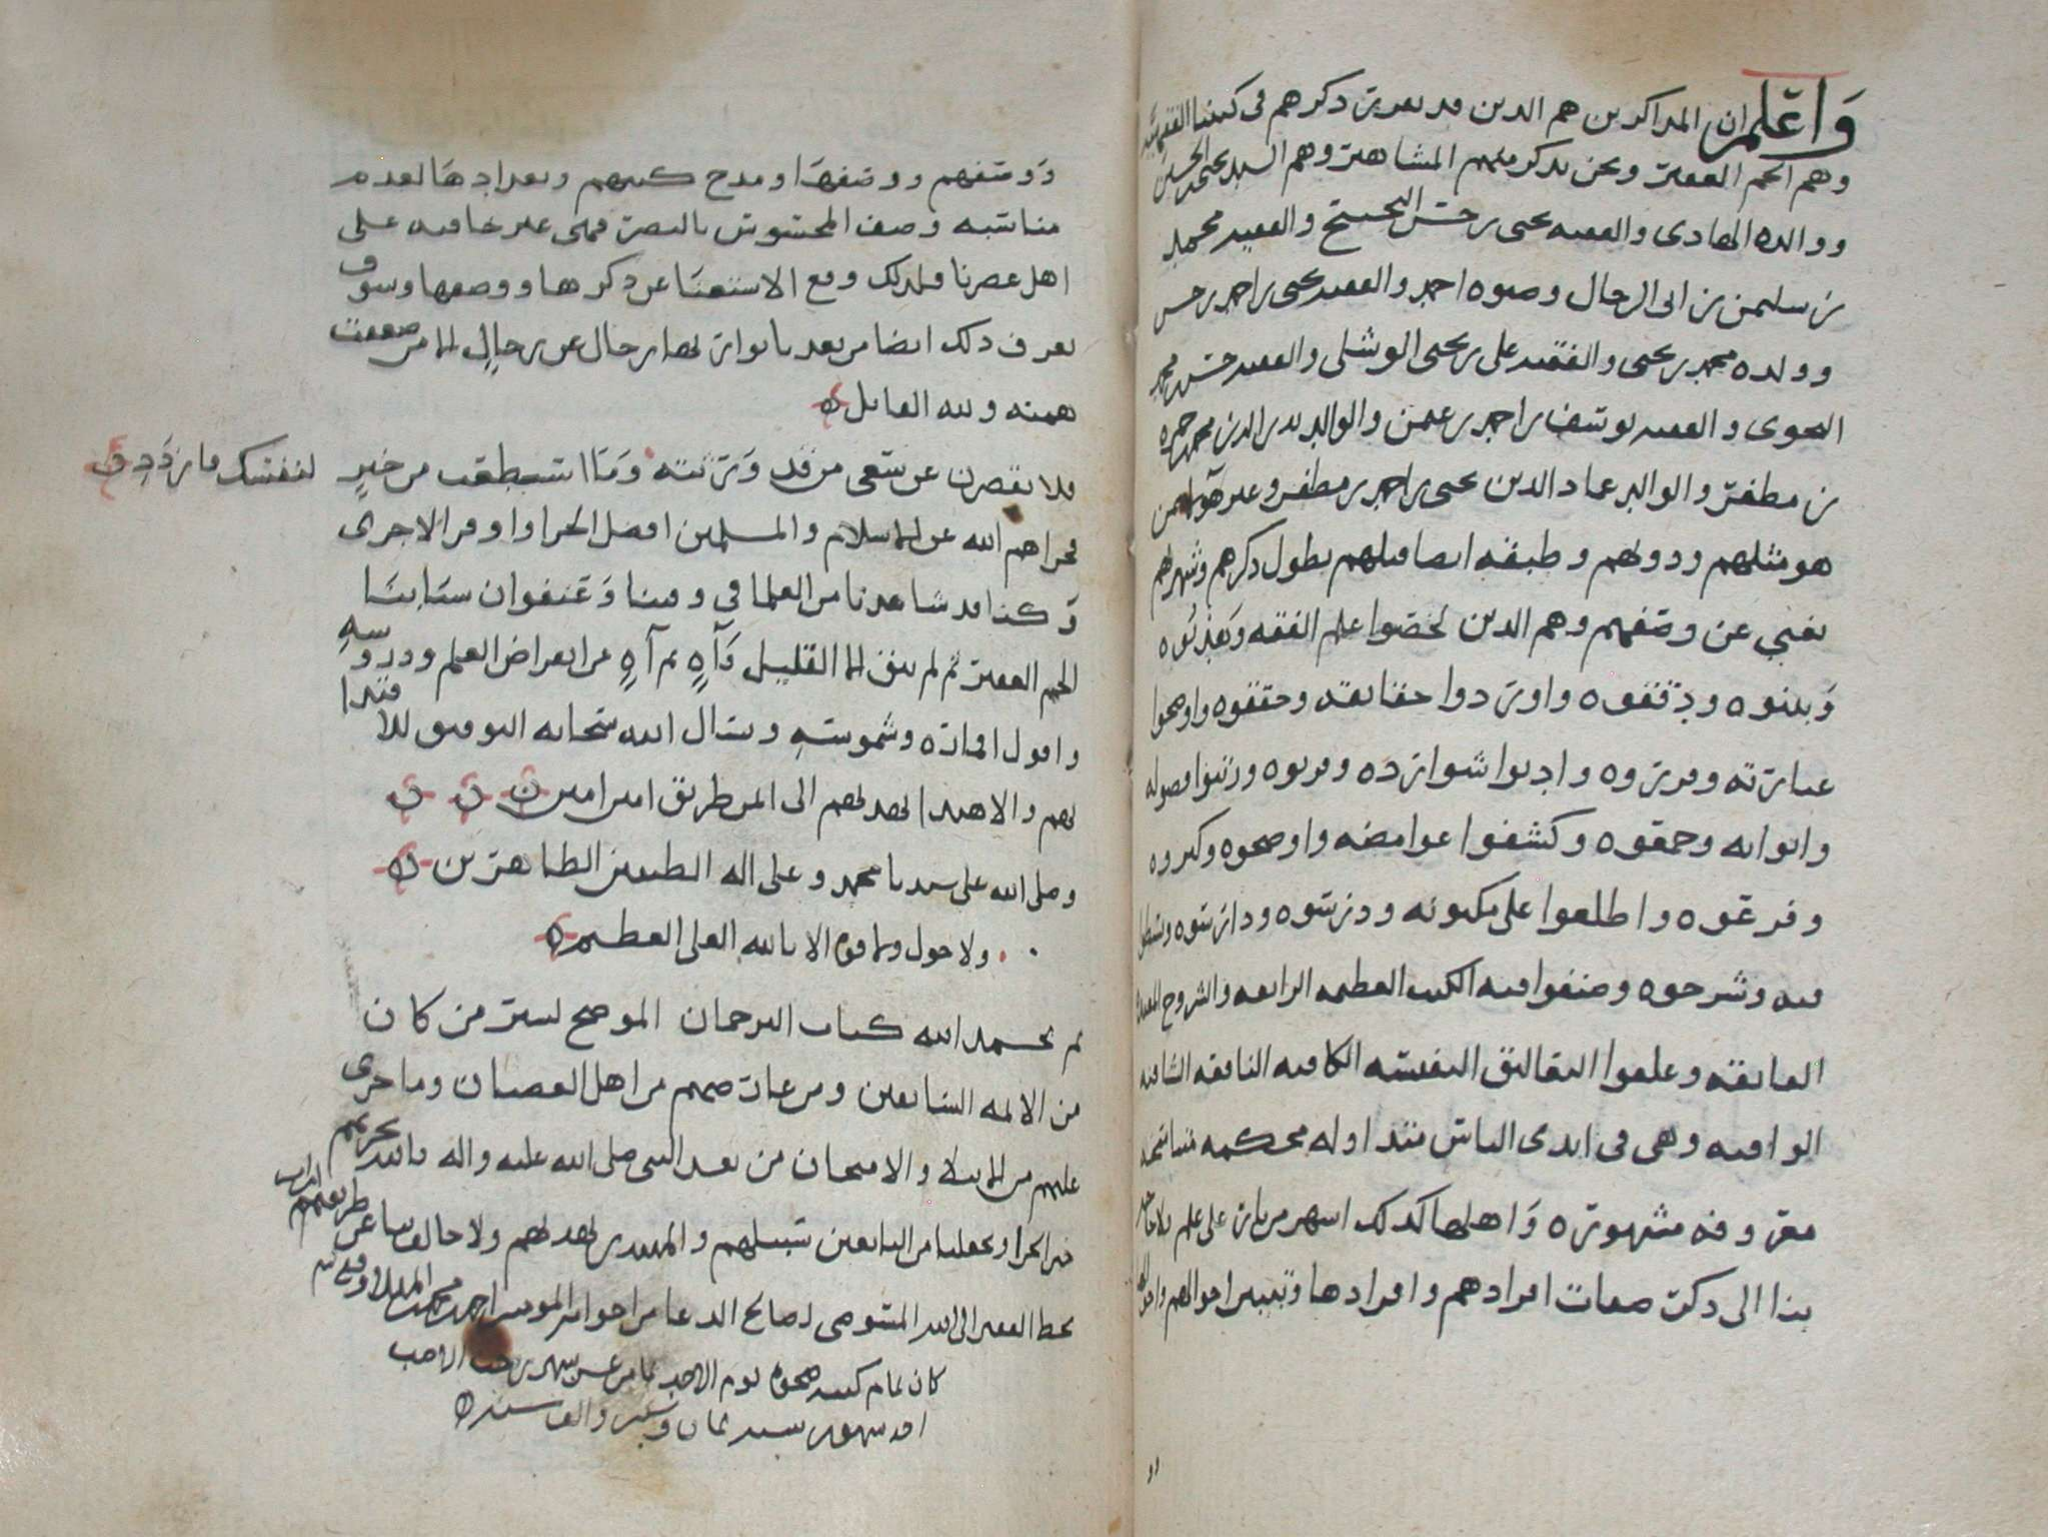 واعلم ان المذاكرين هم الذين قد تقدم ذكرهم في كتبنا الفقهية
وهم الجم الغفير ونحن نذكر منهم المشاهير وهم السيد يحيى بن الحسين
ووالده الهادي والفقيه يحيى بن حسن البحيح والفقيه محمد
بن سليمن بن ابي الرجال وصنوه احمد والفقيه يحيى بن احمد بن حسن
وولده محمد بن يحيى والفقيه علي بن يحيى الوشلي والفقيه حسن بن محمد
النحوي والفقيه يوسف بن احمد بن عثمن والوالد بدر الدين محمد بن حمزه
بن مظفر والوالد عماد الدين يحيى بن احمد بن مظفر وغير هؤلاء ممن
هو مثلهم ودونهم وطبقه ايضا قبلهم يطول ذكرهم وشهرتهم
تغني عن وصفهم وهم الذين لخصوا علم الفقه وهذبوه
وبينوه ودققوه واوردوا حقايقه وحققوه واوضحوا
عبارته وقرروه وادنوا شوارده وقربوه ورتبوا فصوله
وابوابه وحققوه وكشفوا غوامضه واوضحوه وكرروه
وفرعوه واطلعوا على مكنونه ودرسوه ودارسوه
فيه وشرحوه وصنفوا فيه الكتب العظيمه الرايعه والشروح المفيده
الفايقه وعلقوا التعاليق النفيسه الكافيه النافعه الشافيه
الوافيه وهي في ايدي الناس متداوله محكمه
معروفه مشهوره واهلها كذلك اشهر من نار على علم فلا حاجه
بنا الى ذكر صفات افرادهم وافرادها وتبيين احوالهم
ووصفهم ووصفها ومدح كتبهم وتعدادها لعدم
مناسبه وصف المحسوس بالبصر فهي غير خافيه على
اهل عصرنا فلذلك وقع الاستغنا عن ذكرها ووصفها وسوف
يعرف ذلك ايضا من بعدنا تواتر لها رجال عن رجال الا من ضعفت
همته ولله القايل
فلا تقصرن عن سعي من قد ورثته وما اسطعت من خير لنفسك فازدد
فجزاهم الله عن الاسلام والمسلمين افضل الجزا واوفر الاجرى
وكنا قد شاهدنا من العلما في وقتنا وعنفوان شبابنا
الجم الغفير ثم لم يبق الا القليل وآه ثم آه من انقراض العلم ودروسه
وافول اقماره وشموسه ونسال الله سبحانه التوفيق للاقتدا
بهم والاهتدا بهديهم الى اقوم طريق امين امين
وصلى الله على سيدنا محمد وعلى اله الطيبين الطاهرين
ولا حول ولا قوه الا بالله العلي العظيم
تم بحمد الله كتاب الترجمان الموضح لسير من كان
من الائمه السابقين ومن عارضهم من اهل العصيان وما جرى
عليهم من البلا والامتحان من بعد النبي صلى الله عليه واله فالله يجزيهم
خير الجزا ويجعلنا من التابعين سبيلهم والمهتدين بهديهم ولا خالف بنا عن طريقهم امين
بخط الفقير الى الله المستوصي لصالح الدعا من اخوانه المومنين احمد بن محمد
كان تمام كتبه ضحوه يوم الاحد ثامن عشر شهر رجب الاصب
احد شهور سنه ثمان وستين والف سنه